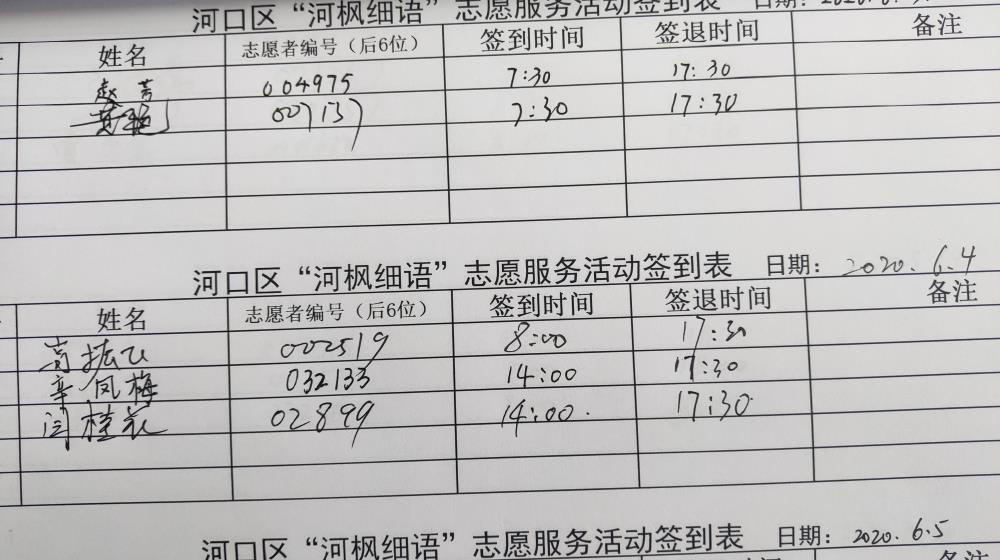 河口区“河枫细语”志愿服务活动签到表 日期：2020.6.
姓名 志愿者编号（后6位） 签到时间 签退时间 备注
赵芳 004975 7:30 17:30
007137 7:30 17:30
河口区“河枫细语”志愿服务活动签到表 日期：2020.6.4
姓名 志愿者编号（后6位） 签到时间 签退时间 备注
高振飞 002519 8:00 17:30
辛凤梅 032133 14:00 17:30
闫桂花 02899 14:00 17:30
河口区“河枫细语”志愿服务活动签到表 日期：2020.6.5
备注